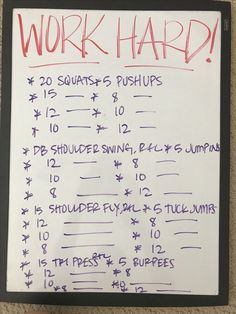 WORK HARD!
* 20 SQUATS * 5 PUSHUPS
* 15 — * 8 —
* 10 — * 12 —
* DB SHOULDER SWING, R&L * 5 JUMPIN
* 12 — * 8 —
* 10 — * 10 —
* 8 — * 12 —
* 15 SHOULDER FLY, R&L * 5 TUCK JUMPS
* 12 — * 8 —
* 10 — * 10 —
* 8 — * 12 —
* 15 TRI PRESS R&L * 5 BURPEES
* 12 — * 8 —
* 10 — * 10 —
* 8 — * 12 —